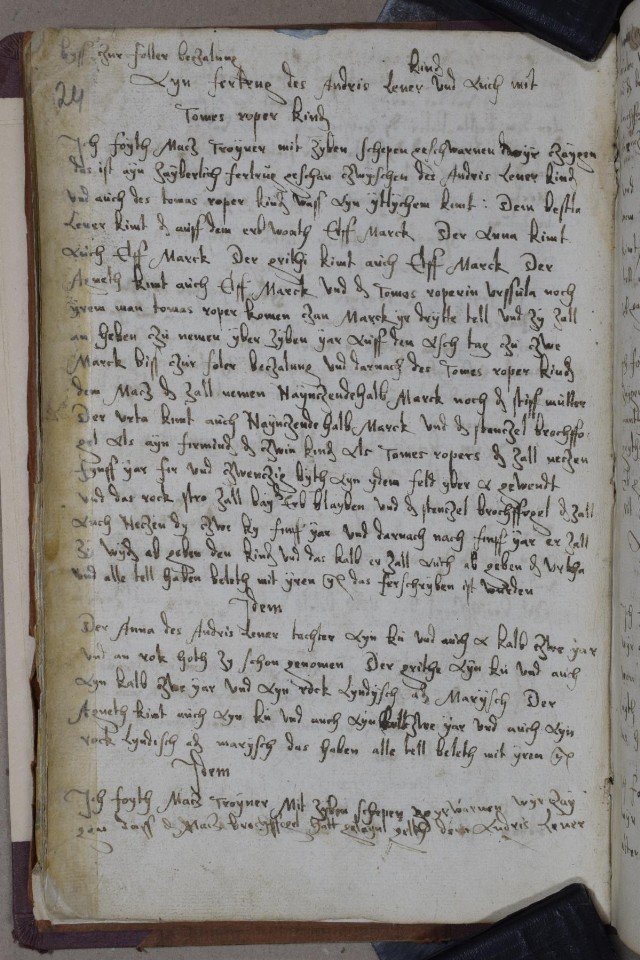 byss zur foller beczalung
24
Ayn fertrug des Andris Lener kind und Auch mit
Tomes roper kind
Ich foyth Macz Troyner mit zyben schepen geschwarnen wyr zaygen
das ist ayn zayberlich fertrug geschan zwyschen des Andris Lener kind
und auch des tomas roper kind wass Ayn ytlychem kimt: Dem
Lener kimt auss dem erb Elff Marck Der Anna kimt
Auch Elff Marck Der grithi kimt auch Elff Marck Der
Agneth kimt auch Elff Marck Und Tomes roperin urssula noch
yrem man tomas roper komen zan Marck yr drytte tell und zy zall
an heben zu nemen yber zyben yar Auff den Asch tag zu zwe
Marck biss zur foler beczalung und darnach des Tomes roper kind
dem Macz zall nemen Naynzendhalb Marck noch stiff mutter
Der urta kimt auch Naynzendhalb Marck und stenczel brochffo
gel Als ayn firmind zwin kind Als Tomes ropers zall neczen
fynff yar fir und zwenczig byth Ayn ydem feld yber A gewendt
und das rock stro zall bay Erb blayben und stenczel brochffogel zall
Auch Neczen dy zwe ky finff yar und darnach nach finff yar er zall
zy wyder ab geben den kind und das kalb er zall Auch ab geben urtha
und alle tell haben beleth mit yren das ferschryben ist wurden
Idem
Der Anna des Andris Lener tochter Ayn ku und auch A kalb zwe yar
und an rok hoth zy schon genomen Der grithe Ayn ku und auch
Ayn kalb zwe yar und Ayn rock Lyndysch ab Marysch Der
Agneth kimt auch Ayn ku und auch Ayn kalb zwe yar und auch Ayn
rock Lyndisch ab marysch das haben alle tell beleth mit yren
Idem
Ich foyth Macz Troyner Mit zyben schepen geschwarnen wyr zay
gen dass Macz brochffogel hatt gelegt geltt dem Andris Lener